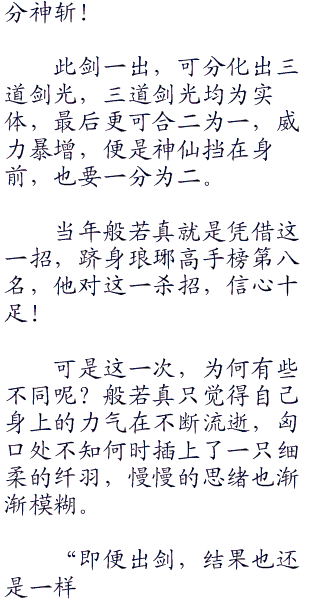 分神斩！
此剑一出，可分化出三
道剑光，三道剑光均为实
体，最后更可合二为一，威
力暴增，便是神仙挡在身
前，也要一分为二。
当年般若真就是凭借这
一招，跻身琅琊高手榜第八
名，他对这一杀招，信心十
足！
可是这一次，为何有些
不同呢？般若真只觉得自己
身上的力气在不断流逝，匈
口处不知何时插上了一只细
柔的纤羽，慢慢的思绪也渐
渐模糊。
“即便出剑，结果也还
是一样